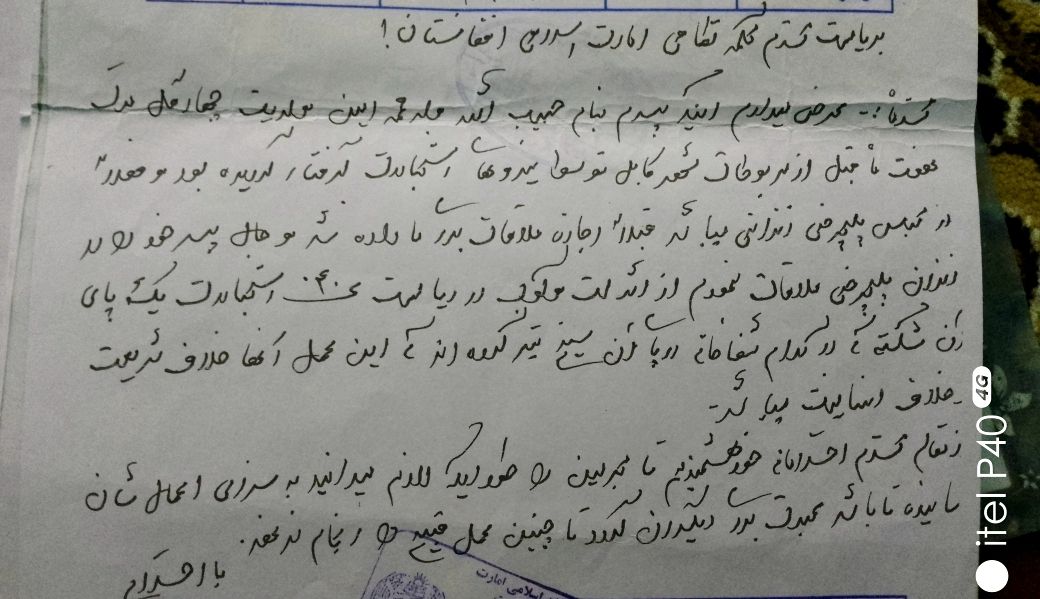 بریاست محترم محکمه نظامی امارت اسلامی افغانستان!
محترما: عرض میدارم اینکه پسرم بنام حبیب الله ولد محمد امین مولدیت چهار قبل مدت
هفت ماه قبل از مربوطات شهر کابل توسط نیروهای استخبارات گرفتار گردیده بود و فعلاً
در محبس پلچرخی زندانی میباشد فعلاً اجازه ملاقات برای ما داده شد و حال پسر خود را در
زندان پلچرخی ملاقات نمودم از اثر لت و کوب در ریاست ۰۴۰ استخبارات یک پای
آن شکسته که در کدام شفاخانه در پای آن سیخ تیر کرده اند که این عمل آنها خلاف شریعت
خلاف انسانیت میباشد
از مقام محترم احترامانه خواهشمندیم تا مجرمین را طوریکه لازم میدانید به سزای اعمال شان
برسانید تا باشد عبرت برای دیگران گردد تا چنین عمل قبیح را انجام ندهند.
با احترام
اسلامی امارت
itel P40 4G